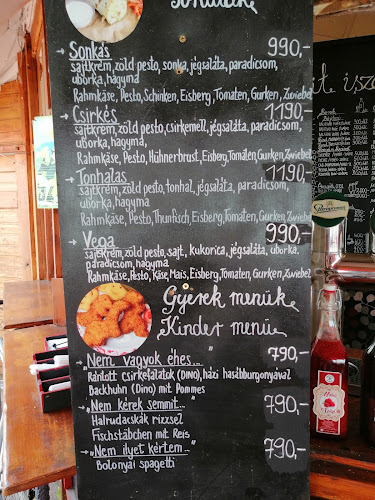 Sonkás 990,-
sajtkrém, zöld pesto, sonka, jégsaláta, paradicsom,
uborka, hagyma
Rahmkäse, Pesto, Schinken, Eisberg, Tomaten, Gurken, Zwiebel
Csirkés 1190,-
sajtkrém, zöld pesto, csirkemell, jégsaláta, paradicsom,
uborka, hagyma,
Rahmkäse, Pesto, Hühnerbrust, Eisberg, Tomaten, Gurken, Zwiebel
Tonhalas 1190,-
sajtkrém, zöld pesto, tonhal, jégsaláta, paradicsom,
uborka, hagyma
Rahmkäse, Pesto, Thunfisch, Eisberg, Tomaten, Gurken, Zwiebel
Vega 990,-
sajtkrém, zöld pesto, sajt, kukorica, jégsaláta, uborka,
paradicsom, hagyma
Rahmkäse, Pesto, Käse, Mais, Eisberg, Tomaten, Gurken, Zwiebel
Gyerek menük
Kinder menü
"Nem vagyok éhes..." 790,-
Rántott csirkefalatok (DINO), házi hasábburgonyával
Backhuhn (Dino) mit Pommes
"Nem kérek semmit..." 790,-
Halrudacskák rizzsel
Fischstäbchen mit Reis
"Nem ilyet kértem..." 790,-
Bolonyai spagetti